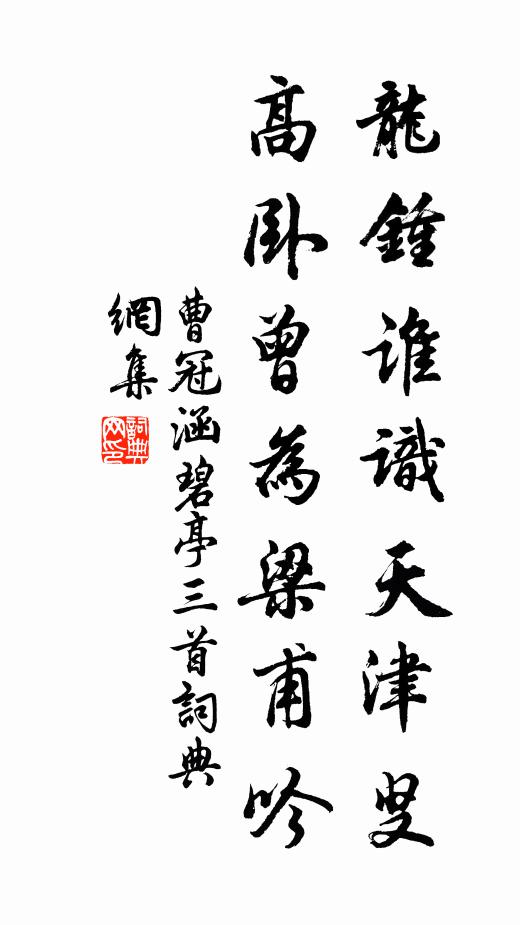 龍鍾誰識天津叟
高卧曾為梁甫吟
曹冠涵碧亭三首詞典
網集
詞典
网印